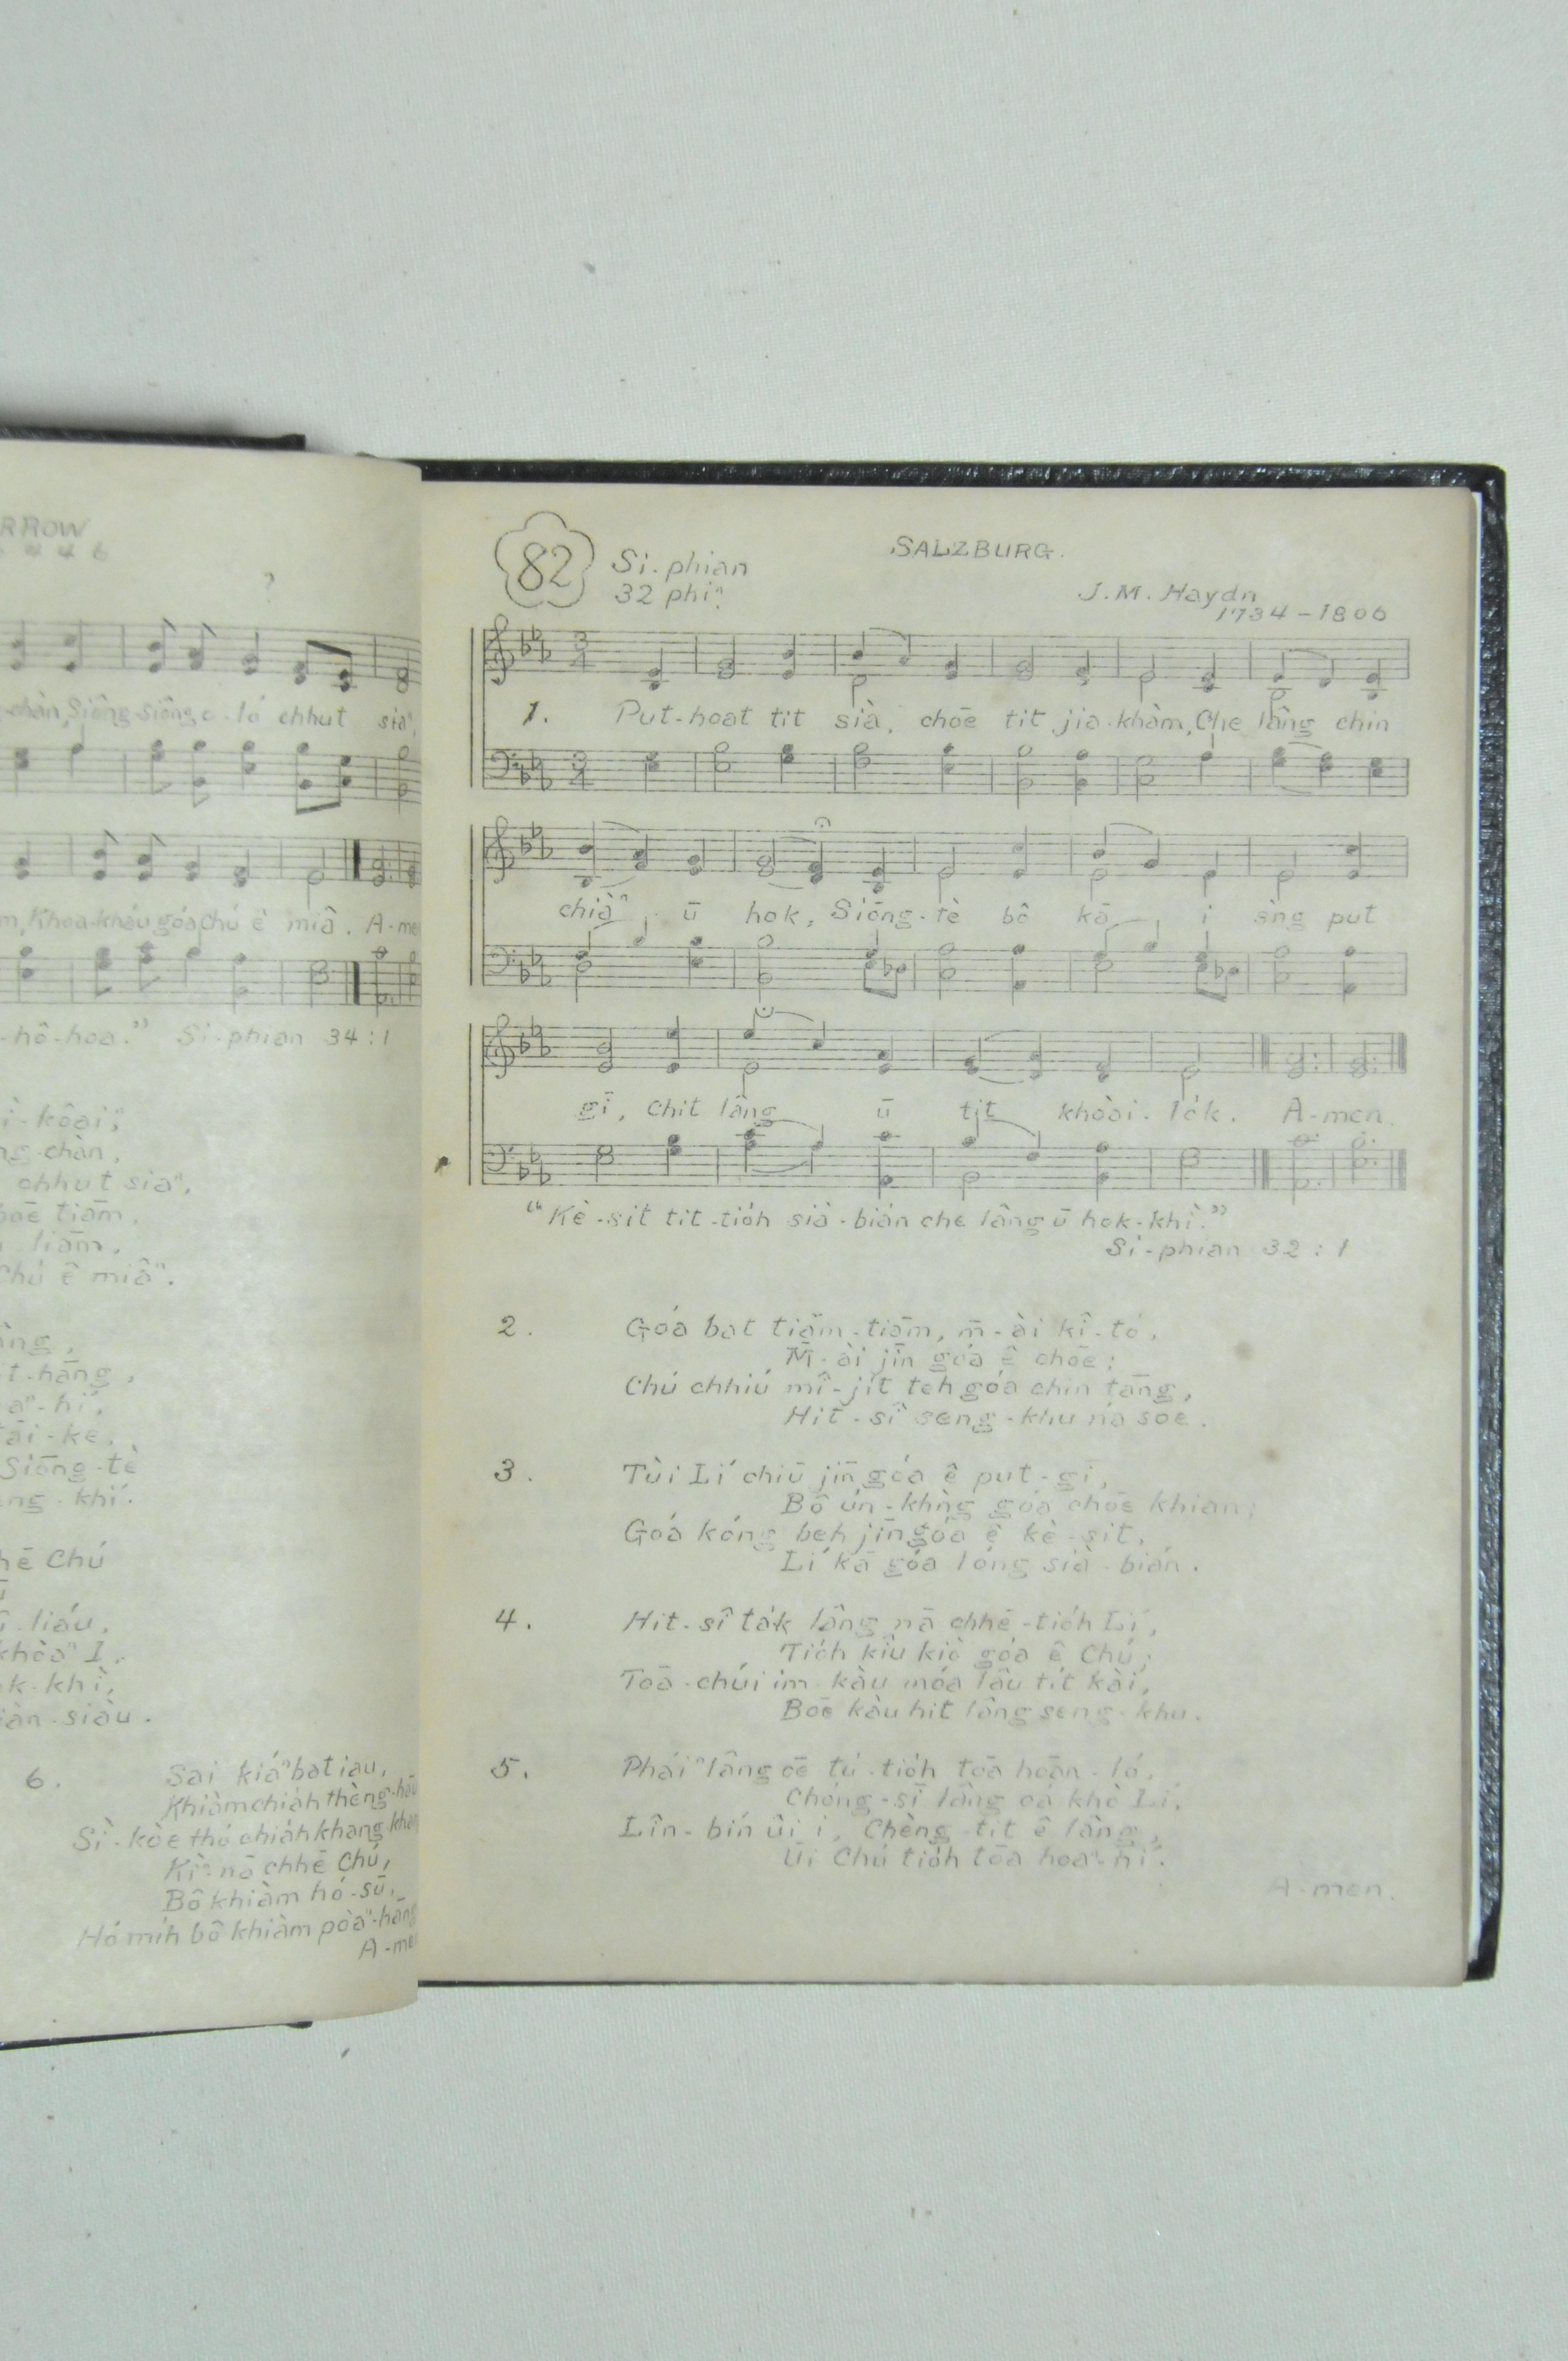 RROW
?
-chàn, Siông-siông o-ló chhut siaⁿ,
Khoa-kháu góa Chú ê miâ. A-me
-hô-hoa." Si-phian 34:1
ì-kôaiⁿ;
ng-chàn,
chhut siaⁿ,
bōe tiām,
liām,
Chú ê miâⁿ.
âng,
t-hāng,
aⁿ-hí,
tāi-ke,
Siōng-tè
eng-khí.
hē Chú
û-liáu,
khòaⁿ I,
ok-khì,
iàn-siàu.
6. Sai kiáⁿ bat iau,
Khiàm chiah thèng-hāu
Sì-kòe thó chiah khang-khang
Kìⁿ-nā chhē Chú,
Bô khiàm hó-sū,
Hó mih bô khiàm pòaⁿ-hāng
A-me
82 Si-phian
32 phiⁿ
SALZBURG.
J. M. Haydn
1734-1806
1. Put-hoat tit sià, chōe tit jia-khàm, Che lâng chin
chiàⁿ ū hok, Siōng-tè bô kā i sǹg put
gī, Chit lâng ū tit khoài-lo̍k. A-men.
"Kè-sit tit-tio̍h sià-bián che lâng ū hok-khì."
Si-phian 32:1
2. Góa bat tiām-tiām, m̄-ài kî-tó,
M̄-ài jīn góa ê chōe;
Chú chhiú mî-ji̍t teh góa chin tāng,
Hit-sî seng-khu ná soe.
3. Tùi Lí chiū jīn góa ê put-gī,
Bô ún-khǹg góa chōe khian;
Góa kóng beh jīn góa ê kè-sit,
Lí kā góa lóng sià-bián.
4. Hit-sî ta̍k lâng nā chhē-tio̍h Lí,
Tio̍h kîu kiò góa ê Chú;
Toā-chúi im-kàu móa lâu tit kài,
Bōe kàu hit lâng seng-khu.
5. Pháiⁿ lâng ōe tú-tio̍h tōa hoān-ló,
Chóng-sī lâng oá khò Lí,
Lîn-bín ûi i, Chèng tit ê lâng,
Ūi Chú tio̍h tōa hoaⁿ-hí.
A-men.